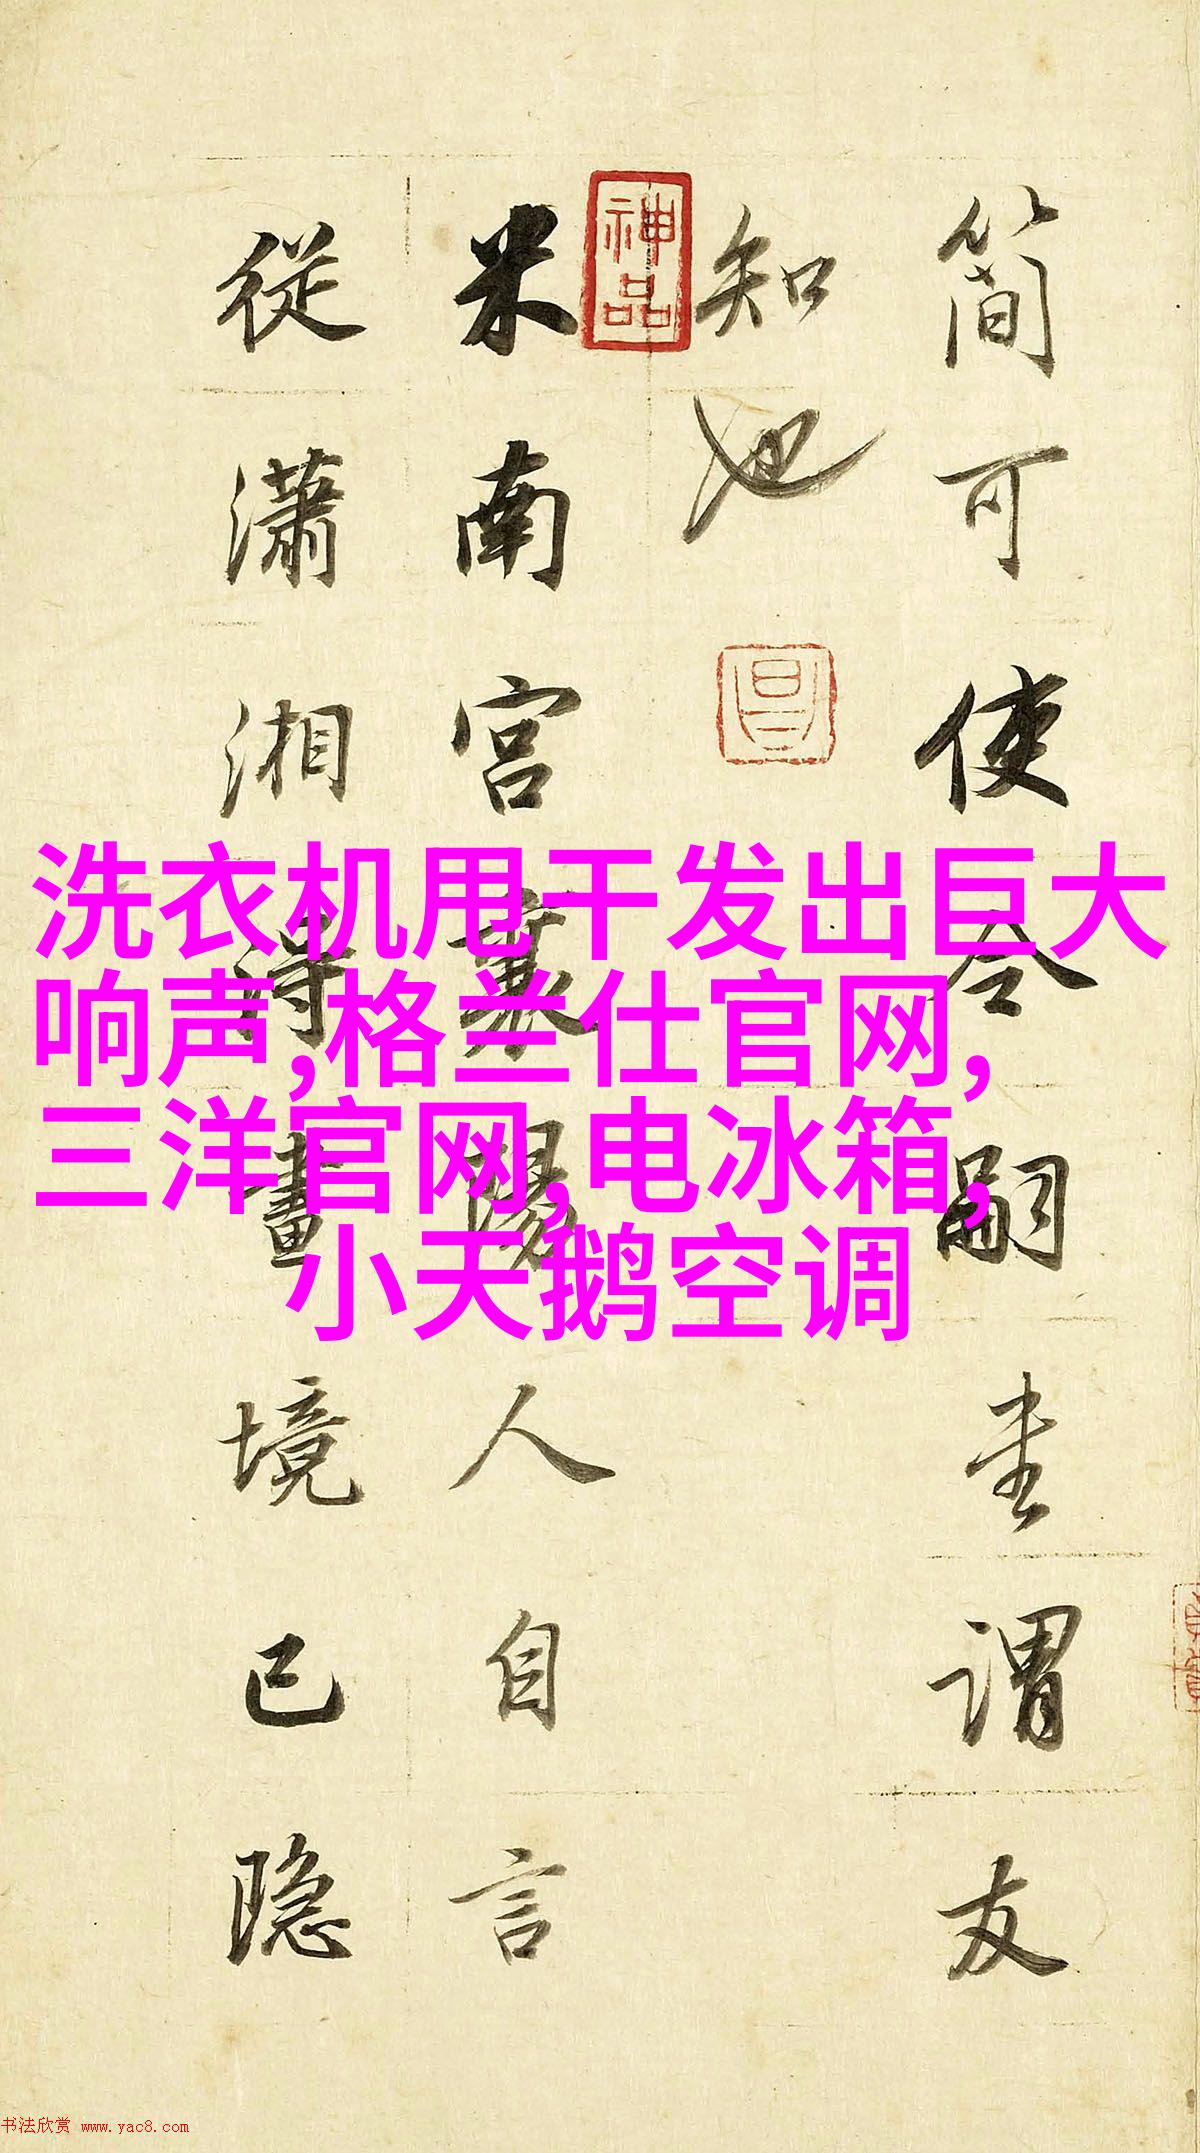 簡可使令嗣畫謂友
知也
米南宮襄陽人自言
從瀟湘得畫境已隐
神品
洗衣机甩干发出巨大
响声,格兰仕官网,
三洋官网,电冰箱,
小天鹅空调
书法欣赏 www.yac8.com